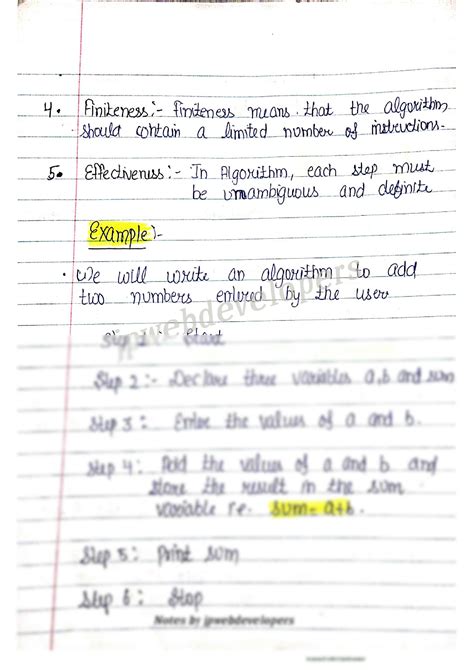 4. Finiteness:- Finiteness means that the algorithm
should contain a limited number of instructions.
5. Effectiveness:- In Algorithm, each step must
be unambiguous and definite
Example:-
• We will write an algorithm to add
two numbers entered by the user
jpwebdevelopers
Step 1: Start
Step 2:- Declare three variables a,b and sum
Step 3: Enter the values of a and b.
Step 4: Add the values of a and b and
store the result in the sum
variable i.e. sum= a+b.
Step 5: Print sum
Step 6: Stop
Notes by jpwebdevelopers